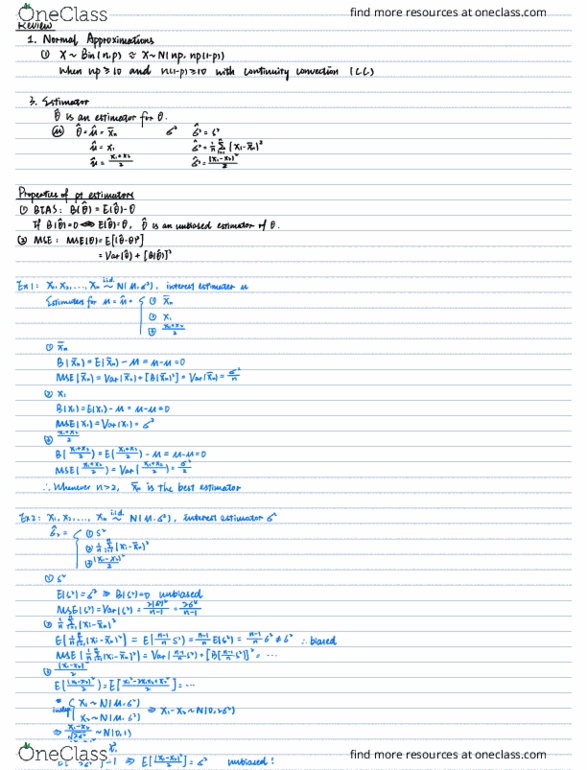 OneClass
find more resources at oneclass.com
Review
1. Normal Approximations
① X ~ Bin(n,p) ≈ X ~ N(np, np(1-p))
When np ≥ 10 and n(1-p) ≥ 10 with continuity correction (CC)
3. Estimator
θ̂ is an estimator for θ.
θ̂ = μ̂ = x̄ₙ σ² σ̂² = s²
μ̂ = x₁ σ̂² = 1/n Σ (xᵢ - x̄ₙ)²
μ̂ = (x₁+x₂)/2 σ̂² = (x₁-x₂)²/2
Properties of pt estimators
① BIAS: B(θ̂) = E(θ̂) - θ
If B(θ̂) = 0 ⇔ E(θ̂) = θ, θ̂ is an unbiased estimator of θ.
② MSE: MSE(θ̂) = E[(θ̂-θ)²]
= Var(θ̂) + [B(θ̂)]²
Ex1: X₁, X₂, ..., Xₙ iid ~ N(μ, σ²), interest estimator μ
Estimates for μ = μ̂ = { ① x̄ₙ
② x₁
③ (x₁+x₂)/2
① x̄ₙ
B(x̄ₙ) = E(x̄ₙ) - μ = μ - μ = 0
MSE(x̄ₙ) = Var(x̄ₙ) + [B(x̄ₙ)²] = Var(x̄ₙ) = σ²/n
② x₁
B(x₁) = E(x₁) - μ = μ - μ = 0
MSE(x₁) = Var(x₁) = σ²
③ (x₁+x₂)/2
B((x₁+x₂)/2) = E((x₁+x₂)/2) - μ = μ - μ = 0
MSE((x₁+x₂)/2) = Var((x₁+x₂)/2) = σ²/2
∴ Whenever n>2, x̄ₙ is the best estimator
Ex2: X₁, X₂, ..., Xₙ iid ~ N(μ, σ²), interest estimator σ²
σ̂² = { ① s²
② 1/n Σ (xᵢ - x̄ₙ)²
③ (x₁-x₂)²/2
① s²
E(s²) = σ² ⇒ B(s²) = 0 unbiased
MSE(s²) = Var(s²) = 2(σ²)²/(n-1) = 2σ⁴/(n-1)
② 1/n Σ (xᵢ - x̄ₙ)²
E[1/n Σ (xᵢ - x̄ₙ)²] = E[(n-1)/n s²] = (n-1)/n E(s²) = (n-1)/n σ² ≠ σ² ∴ biased
MSE[1/n Σ (xᵢ - x̄ₙ)²] = Var((n-1)/n s²) + [B((n-1)/n s²)]² = ...
③ (x₁-x₂)²/2
E[(x₁-x₂)²/2] = E[(x₁²-2x₁x₂+x₂²)/2] = ...
indep { X₁ ~ N(μ, σ²)
X₂ ~ N(μ, σ²) ⇒ X₁-X₂ ~ N(0, 2σ²)
⇒ (x₁-x₂)/√2σ² ~ N(0,1)
⇒ E[(x₁-x₂)²/2] = σ² unbiased!
OneClass
find more resources at oneclass.com